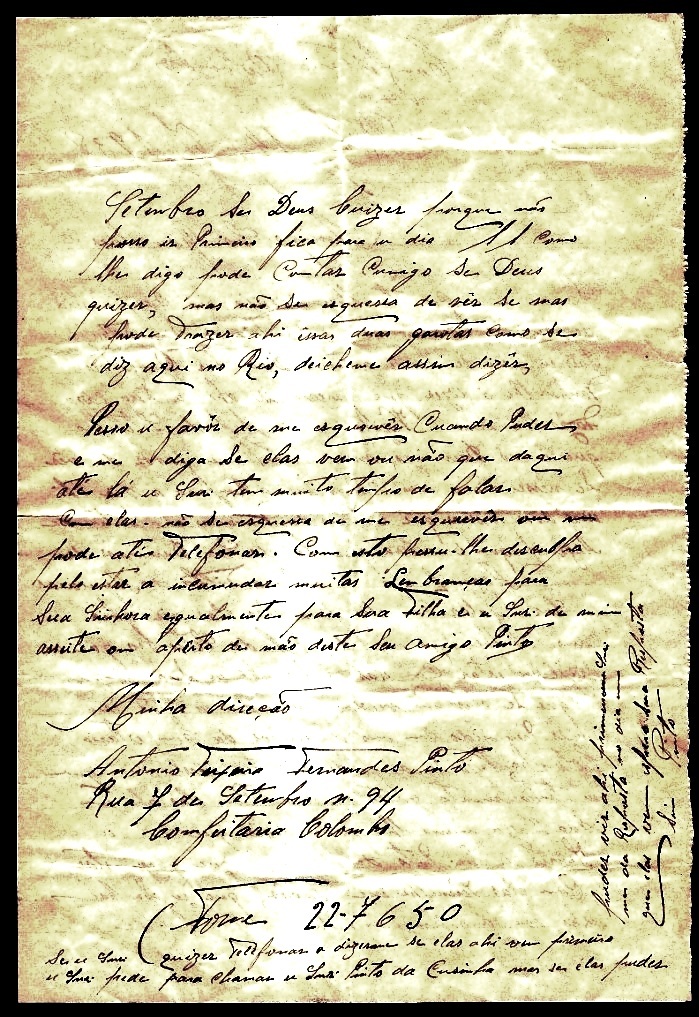 Setembro se Deus Quizer porque não
posso ir Primeiro fica para u dia 11 como
lhe digo pode Contar Comigo se Deus
quizer, mas não se esquesa de vêr se mas
pode Trazer ahi issas duas garotas como se
diz aqui no Rio, deicheme assim dizêr,
Pesso u favôr de me esquevêr Cuando Puder
e me diga se elas vem ou não que daqui
até lá u Snr. tem muito tempo de falar
Com elas. não se esquesa de me esquevêr ou
pode até Telefonar. Com isto pesso-lhe desculpa
pelo estar a incumudar muitas Lembranças para
Sua Sinhora egualmente para Sua Filha e u Snr. de mim
asseite om apêrto de mão deste Seu Amigo Pinto
Minha direcção
Antonio Teixeira Fernandes Pinto
Rua 7 de Setembro n. 94
Comfeitaria Colombo
Fone 22-7650
Se u Snr. quizer Telefonar a dizerme se elas ahi vem primeiro
u Snr. pede para chamar u Snr. Pinto da Cusinha mas se elas puder
puder vir ahi primeiro u Snr.
me da Resposta no dia
que elas vem espero sua Resposta
Sim Pinto